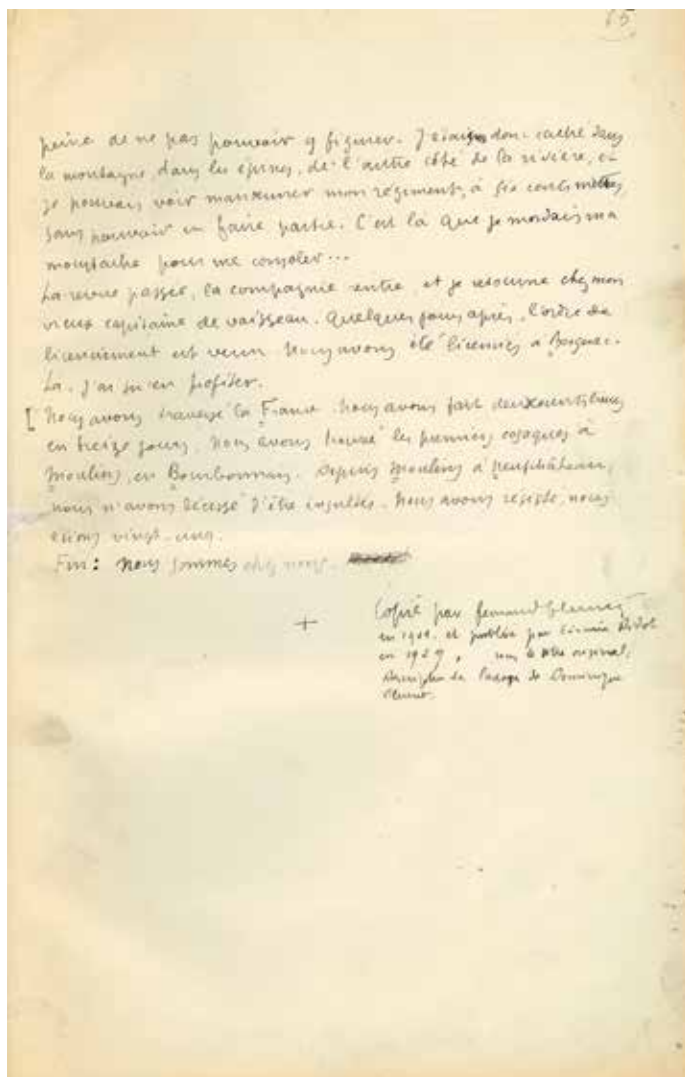 65
peine de ne pas pouvoir y figurer. J'étais donc caché dans
la montagne, dans les épines, de l'autre côté de la rivière, et
je pouvais voir manœuvrer mon régiment, à six cents mètres,
sans pouvoir en faire partie. C'est là que je mordais ma
moustache pour me consoler...
La revue passée, la compagnie rentre, et je retourne chez mon
vieux capitaine de vaisseau. Quelques jours après, l'ordre de
licenciement est venu. Nous avons été licenciés à
Là, j'ai su en profiter.
[ Nous avons traversé la France. Nous avons fait deux cents lieues
en treize jours. Nous avons trouvé les premiers cosaques à
Moulins, en Bourbonnais. Depuis Moulins à Neufchâteau,
nous n'avons décessé d'être insultés. Nous avons résisté, nous
étions vingt-cinq.
Fin : Nous sommes chez nous.
+
Copié par Fernand
en et publié par
en 1929, sous le titre original,
de Dominique